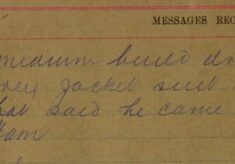 MESSAGES REC
medium build dr
grey jacket suit
hat said he came
Ham